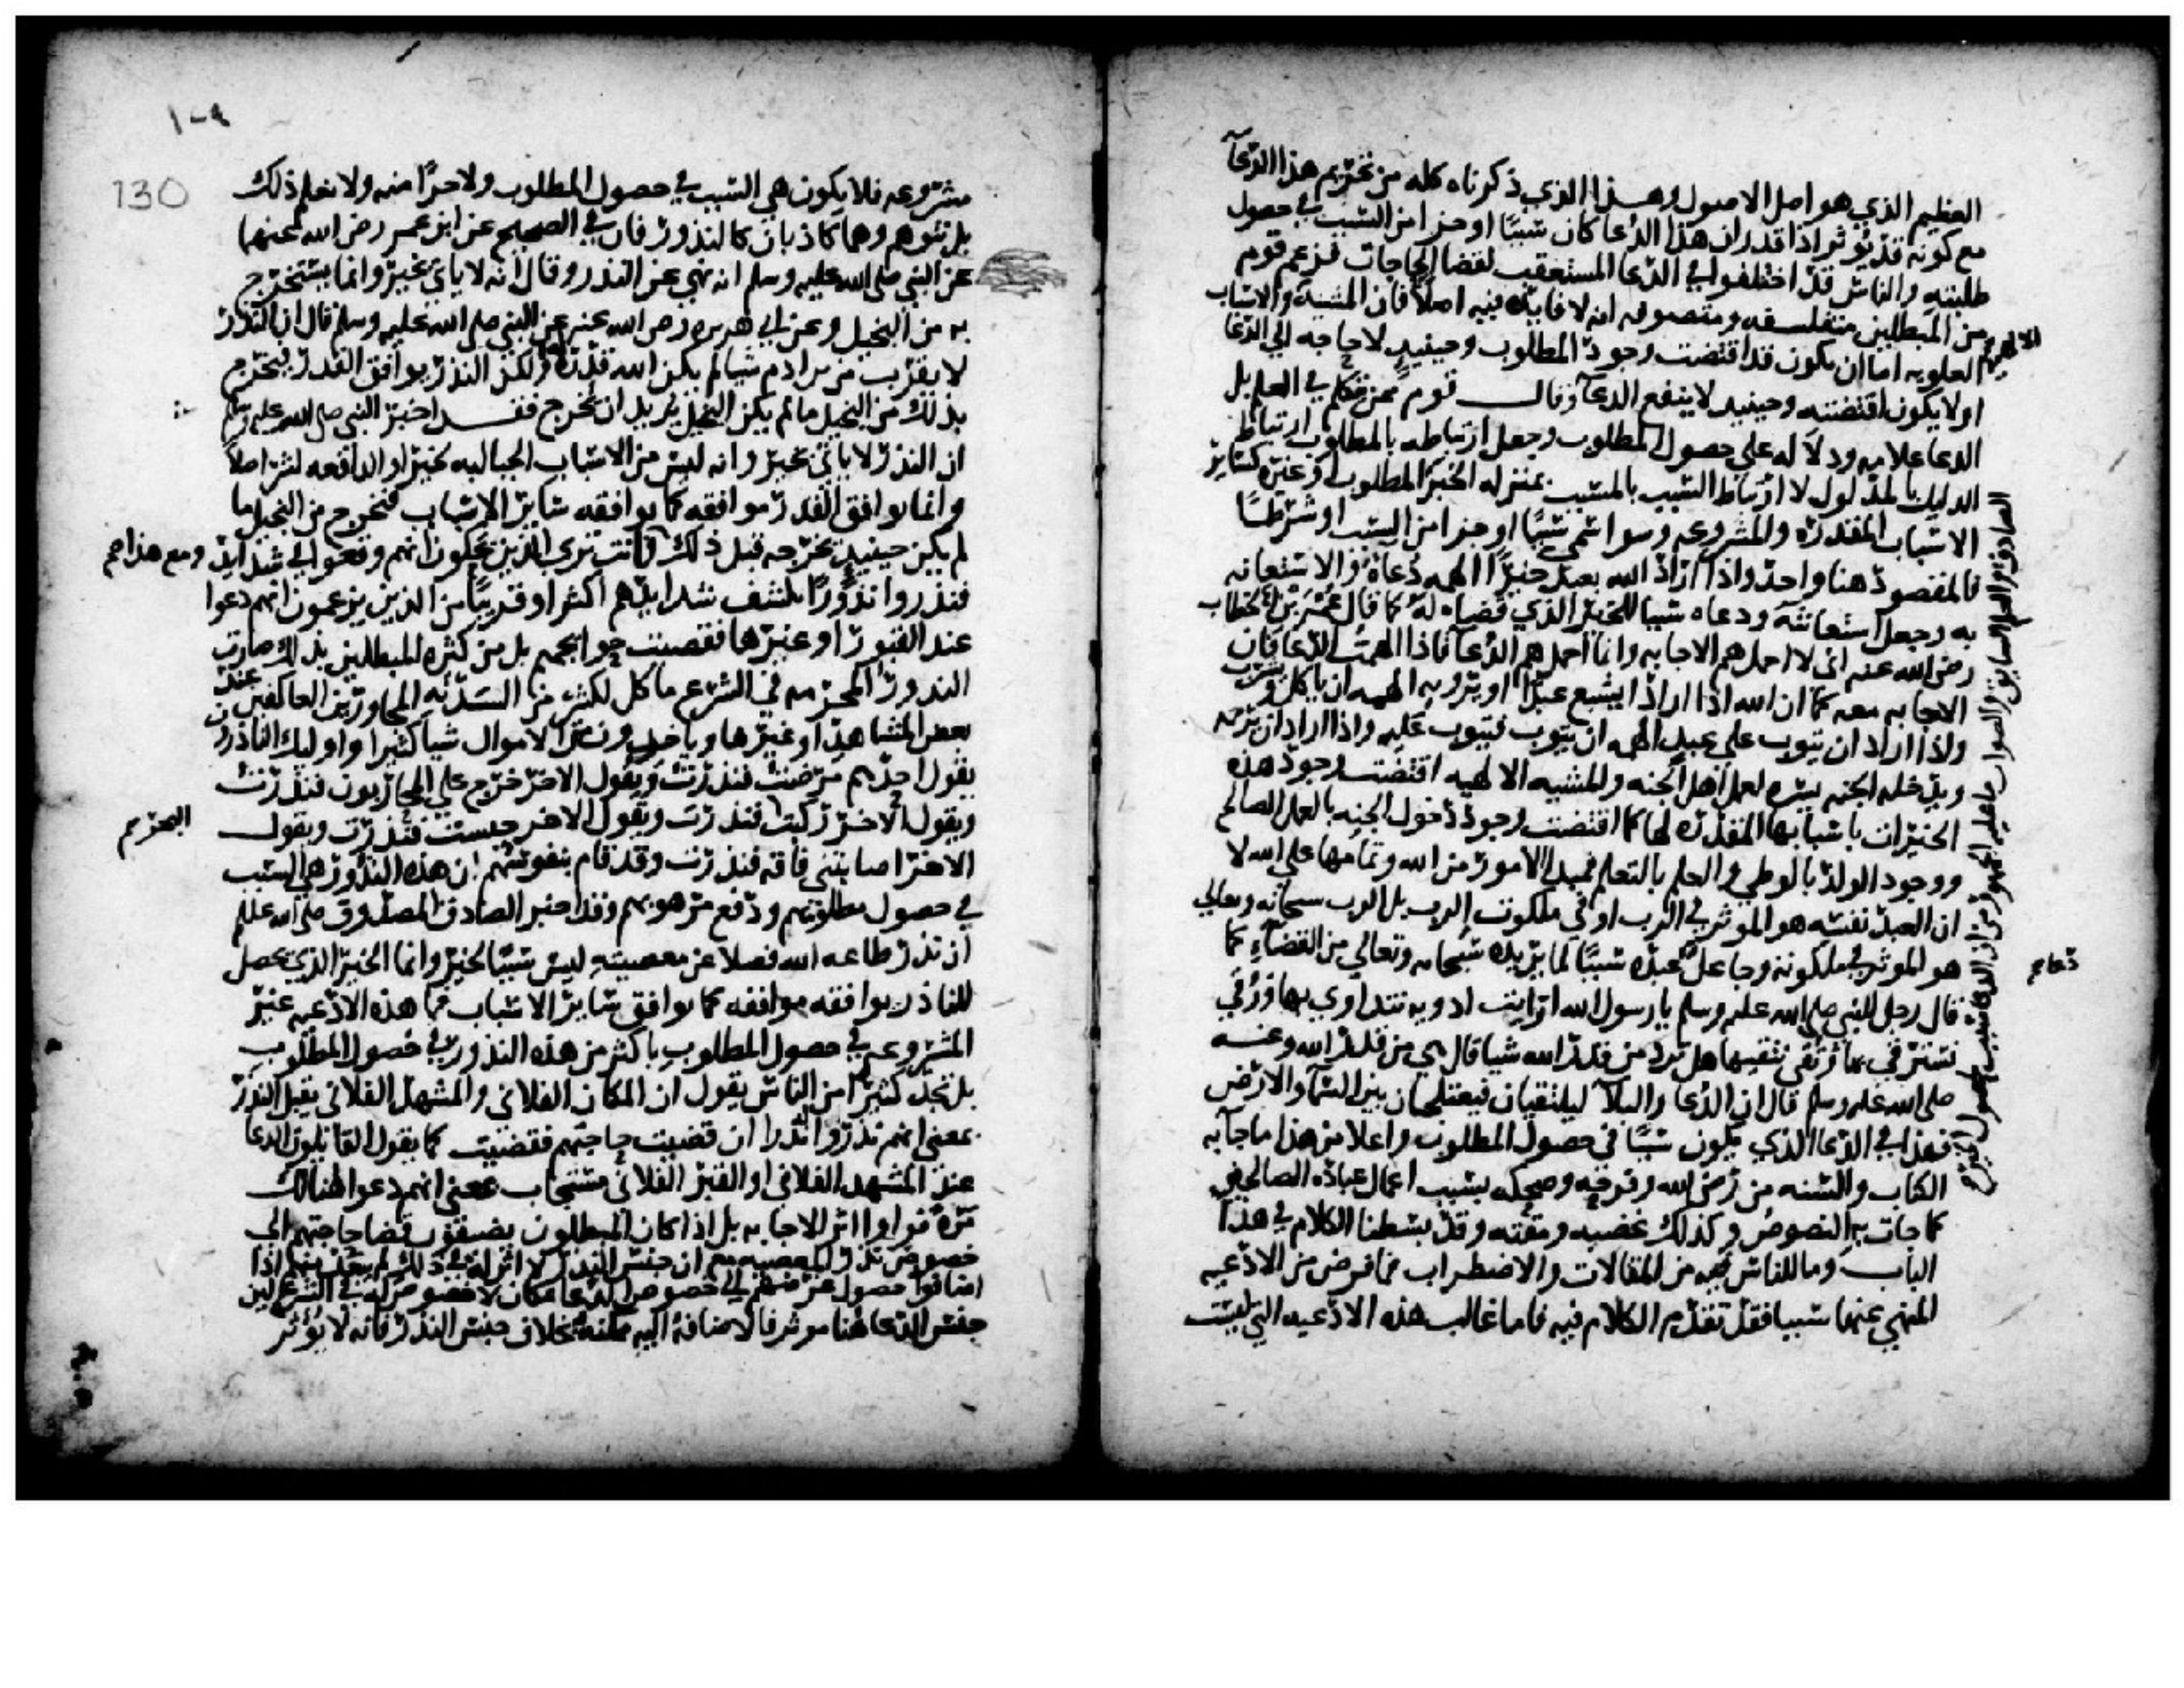 العظيم الذي هو اصل الاصول وهذا الذي ذكرناه كله من تحريم هذا الدعا
مع كونه قد يوثر اذا قدر ان هذا الدعا كان سببا او جزا من السبب في حصول
طلبته والناس قد اختلفوا في الدعا المستعقب لقضا الحاجات فزعم قوم
من المبطلين متفلسفه ومتصوفه انه لا فايده فيه اصلا فان المشيه والاسباب
الالهيه
العلويه اما ان يكون قد اقتضت وجود المطلوب وحينيذ لا حاجه الي الدعا
او لا يكون اقتضته وحينيذ لا ينفع الدعا وقال قوم ممن تكلم في العلم بل
الدعا علامه ودلاله علي حصول المطلوب وجعل ارتباطه بالمطلوب ارتباط
الدليل بالمدلول لا ارتباط السبب بالمسبب بمنزله الخبر المطلوب وغيره كساير
الاسباب المقدره والمشروعه وسوا سمي سببا او جزا من السبب او شرطا
فالمقصود هنا واحد واذا اراد الله بعبد خيرا الهمه دعاه والاستعانه
به وجعل استعانته ودعاه سببا للخير الذي قضاه له كما قال عمر بن الخطاب
رضي الله عنه اني لا احمل هم الاجابه وانما احمل هم الدعا فاذا الهمت الدعا فان
الاجابه معه كما ان الله اذا اراد ان يشبع عبدا او يرويه الهمه ان ياكل ويشرب
واذا اراد ان يتوب علي عبد الهمه ان يتوب فيتوب عليه واذا اراد ان يرحمه
ويدخله الجنه يسره لعمل اهل الجنه والمشيه الالهيه اقتضت وجود هذه
الخيرات باسبابها المقدره لها كما اقتضت وجود دخول الجنه بالعمل الصالح
ووجود الولد بالوطي والعلم بالتعلم فمبدا الامور من الله وتمامها علي الله لا
ان العبد نفسه هو الموثر في الرب او في ملكوت الرب بل الرب سبحانه وتعالي
هو الموثر في ملكوته وجاعل دعا عبده سببا لما يريده سبحانه وتعالي من القضاء كما
قال رجل للنبي صلي الله عليه وسلم يا رسول الله ارايت ادويه نتداوي بها ورقي
نسترقي بها وتقي نتقيها هل ترد من قدر الله شيا قال هي من قدر الله وعنه
صلي الله عليه وسلم قال ان الدعا والبلا ليلتقيان فيعتلجان بين السما والارض
فهذا في الدعا الذي يكون سببا في حصول المطلوب واعلا من هذا ما جا به
الكتاب والسنه من رضي الله وفرحه وضحكه بسبب اعمال عباده الصالحين
كما جات به النصوص وكذلك غضبه ومقته وقد بسطنا الكلام في هذا
الباب وما للناس فيه من المقالات والاضطراب فما فرض من الادعيه
المنهي عنها سببا فقد تقدم الكلام فيه فاما غالب هذه الادعيه التي ليست
الصادق والعلم السابق والصواب ما عليه الجمهور من ان الدعا سبب لحصول الخير
١٠٩
130
مشروعه فلا يكون هي السبب في حصول المطلوب ولا جزا منه ولا نعلم ذلك
بل نتوهم وهما كاذبا كالنذور فان في الصحيح عن ابن عمر رضي الله عنهما
عن النبي صلي الله عليه وسلم انه نهي عن النذر وقال انه لا ياتي بخير وانما يستخرج
به من البخيل وعن ابي هريره رضي الله عنه عن النبي صلي الله عليه وسلم قال ان النذر
لا يقرب من بن ادم شيا لم يكن الله قدره له ولكن النذر يوافق القدر فيخرج
بذلك من البخيل ما لم يكن البخيل يريد ان يخرج فقد اخبر النبي صلي الله عليه وسلم
ان النذر لا ياتي بخير وانه ليس من الاسباب الجالبه لخير او الدافعه لشر اصلا
وانما يوافق القدر موافقه كما يوافقه ساير الاسباب فيخرج من البخيل ما
لم يكن حينيذ يخرجه قبل ذلك فانت تري الذين يحكون انهم وقعوا في شدايد ومع هذا هم
فنذروا نذورا لكشف شدايدهم اكثر او قريبا من الذين يزعمون انهم دعوا
عند القبور او غيرها فقضيت حوايجهم بل من كثره المبطلين بذلك صارت
النذور المحرمه في الشرع ماكل لكثير من السدنه المجاورين العاكفين عند
بعض المشاهد او غيرها وياخذون من الاموال شيا كثيرا واوليك الناذرون
يقول احدهم مرضت فنذرت ويقول الاخر خرج علي المحاربون فنذرت
ويقول الاخر ركبت البحر فنذرت ويقول الاخر حبست فنذرت ويقول
الاخر اصابتني فاقه فنذرت وقد قام بنفوسهم ان هذه النذور هي السبب
في حصول مطلوبهم ودفع مرهوبهم وقد اخبر الصادق المصدوق صلي الله عليه وسلم
ان نذر طاعه الله فضلا عن معصيته ليس سببا لخير وانما الخير الذي يحصل
للناذر يوافقه موافقه كما يوافق ساير الاسباب فما هذه الادعيه غير
المشروعه في حصول المطلوب باكثر من هذه النذور في حصول المطلوب
بل تجد كثيرا من الناس يقول ان المكان الفلاني والمشهد الفلاني يقبل النذر
بمعني انهم نذروا نذرا ان قضيت حاجتهم فقضيت كما يقول القايلون الدعا
عند المشهد الفلاني او القبر الفلاني مستجاب بمعني انهم دعوا هنالك
مره فراوا اثر الاجابه بل اذا كان المبطلون يضيفون قضا حاجتهم الي
خصوص نذر المعصيه مع ان جنس النذر لا اثر له في ذلك لم يبعد منهم اذا
اضافوا حصول غرضهم الي خصوص الدعا بمكان لا خصوص له في الشرع لان
جنس الدعا هنا موثر فالاضافه اليه ممكنه بخلاف جنس النذر فانه لا يوثر